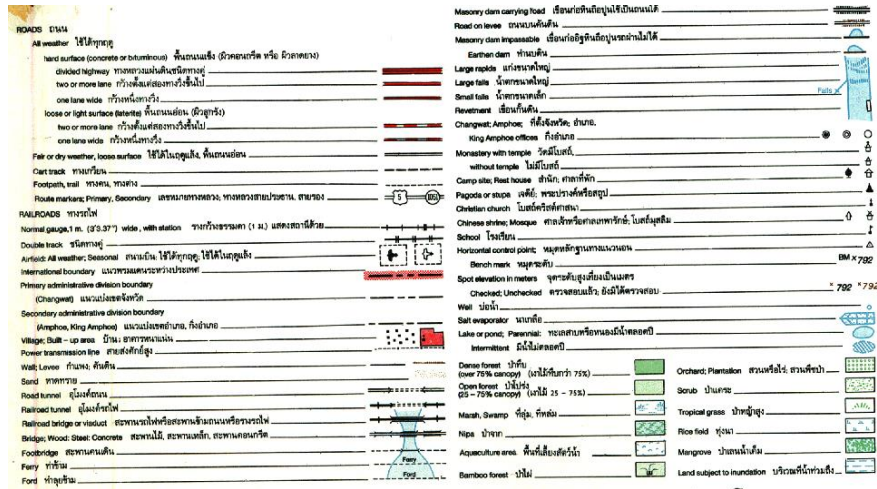 ROADS ถนน
All weather ใช้ได้ทุกฤดู
hard surface (concrete or bituminous) พื้นถนนแข็ง (ผิวคอนกรีต หรือ ผิวลาดยาง)
divided highway ทางหลวงแผ่นดินชนิดทางคู่
two or more lane กว้างตั้งแต่สองทางวิ่งขึ้นไป
one lane wide กว้างหนึ่งทางวิ่ง
loose or light surface (laterite) พื้นถนนอ่อน (ผิวลูกรัง)
two or more lane กว้างตั้งแต่สองทางวิ่งขึ้นไป
one lane wide กว้างหนึ่งทางวิ่ง
Fair or dry weather, loose surface ใช้ได้ในฤดูแล้ง, พื้นถนนอ่อน
Cart track ทางเกวียน
Footpath, trail ทางคน, ทางต่าง
Route markers; Primary, Secondary เลขหมายทางหลวง; ทางหลวงสายประธาน, สายรอง 5
RAILROADS ทางรถไฟ
Normal gauge, 1 m. (3'3.37") wide, with station รางกว้างธรรมดา (1 ม.) แสดงสถานีด้วย
Double track ชนิดทางคู่
Airfield: All weather; Seasonal สนามบิน ใช้ได้ทุกฤดู; ใช้ได้ในฤดูแล้ง
International boundary แนวพรมแดนระหว่างประเทศ
Primary administrative division boundary
(Changwat) แนวแบ่งเขตจังหวัด
Secondary administrative division boundary
(Amphoe, King Amphoe) แนวแบ่งเขตอำเภอ, กิ่งอำเภอ
Village; Built – up area บ้าน; อาคารหนาแน่น
Power transmission line สายส่งศักย์สูง
Wall; Levee กำแพง; คันดิน
Sand หาดทราย
Road tunnel อุโมงค์ถนน
Railroad tunnel อุโมงค์รถไฟ
Railroad bridge or viaduct สะพานรถไฟหรือสะพานข้ามถนนหรือรางรถไฟ
Bridge; Wood: Steel: Concrete สะพานไม้, สะพานเหล็ก, สะพานคอนกรีต
Footbridge สะพานคนเดิน
Ferry ท่าข้าม Ferry
Ford ท่าลุยข้าม Ford
Masonry dam carrying road เขื่อนก่ออิฐถือปูนใช้เป็นถนนได้
Road on levee ถนนบนคันดิน
Masonry dam impassable เขื่อนก่ออิฐหินถือปูนรถผ่านไม่ได้
Earthen dam ทำนบดิน
Large rapids แก่งขนาดใหญ่
Large falls น้ำตกขนาดใหญ่
Small falls น้ำตกขนาดเล็ก Falls
Revetment เขื่อนกั้นดิน
Changwat; Amphoe; ที่ตั้งจังหวัด; อำเภอ.
King Amphoe offices กิ่งอำเภอ
Monastery with temple วัดมีโบสถ์
without temple ไม่มีโบสถ์
Camp site; Rest house สำนัก; ศาลาที่พัก
Pagoda or stupa เจดีย์; พระปรางค์หรือสถูป
Christian church โบสถ์คริสต์ศาสนา
Chinese shrine; Mosque ศาลเจ้าหรือศาลเทพารักษ์; โบสถ์มุสลิม
School โรงเรียน
Horizontal control point; หมุดหลักฐานทางแนวนอน
Bench mark หมุดระดับ BM × 792
Spot elevation in meters จุดระดับสูงเที่ยงเป็นเมตร
Checked; Unchecked ตรวจสอบแล้ว; ยังมิได้ตรวจสอบ × 792 × 792
Well บ่อน้ำ
Salt evaporator นาเกลือ
Lake or pond; Parennial: ทะเลสาบหรือหนองมีน้ำตลอดปี
Intermittent มีน้ำไม่ตลอดปี
Dense forest ป่าทึบ
(over 75% canopy) (เงาไม้ทึบกว่า 75%)
Open forest ป่าโปร่ง
(25 – 75% canopy) (เงาไม้ 25 – 75%)
Marsh, Swamp ที่ลุ่ม, ที่หล่ม
Nipa ป่าจาก
Aquaculture area พื้นที่เลี้ยงสัตว์น้ำ
Bamboo forest ป่าไผ่
Orchard; Plantation สวนหรือไร่; สวนพืชป่า
Scrub ป่าแคระ
Tropical grass ป่าหญ้าสูง
Rice field ทุ่งนา
Mangrove ป่าเลนน้ำเค็ม
Land subject to inundation บริเวณที่น้ำท่วมถึง